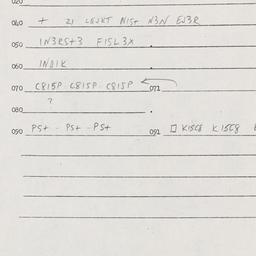 020
040 + 21 LEJKT NIS+ N3N EJ3R
050 IN3RS+3 FISL3X
060 INDIK
070 C815P C815P C815P 071
?
080
090 PS+ - PS+ - PS+ 091 □ K15C8 K 15C8